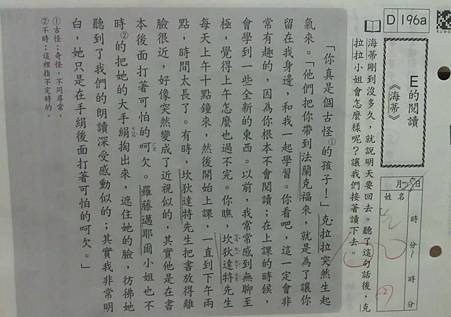 D 196a
E的閱讀
《海蒂》
月 日
姓名
時 分~ 時 分
海蒂剛到沒多久，就說明天要回去。聽了這句話後，克
拉拉小姐會怎麼樣呢？讓我們接著讀下去。
「你真是個古怪①的孩子！」克拉拉突然生起
氣來。「他們把你帶到法蘭克福來，就是為了讓你
留在我身邊，和我一起學習。你看吧，這一定會非
常有趣的，因為你根本不會閱讀；在上課的時候，
會學到一些全新的東西。以前，我常常感到無聊至
極，覺得上午怎麼也過不完。你瞧，坎狄達特先生
每天上午十點鐘來，然後開始上課，一直到下午兩
點，時間太長了。有時，坎狄達特先生把書放得離
臉很近，好像突然變成了近視似的，其實他是在書
本後面打著可怕的呵欠。羅藤邁耶爾小姐也不
時②的把她的大手絹掏出來，遮住她的臉，彷彿她
聽到了我們的朗讀深受感動似的；其實我非常明
白，她只是在手絹後面打著可怕的呵欠。」
①古怪：奇怪，不同尋常。
②不時：這裡指不定時的。